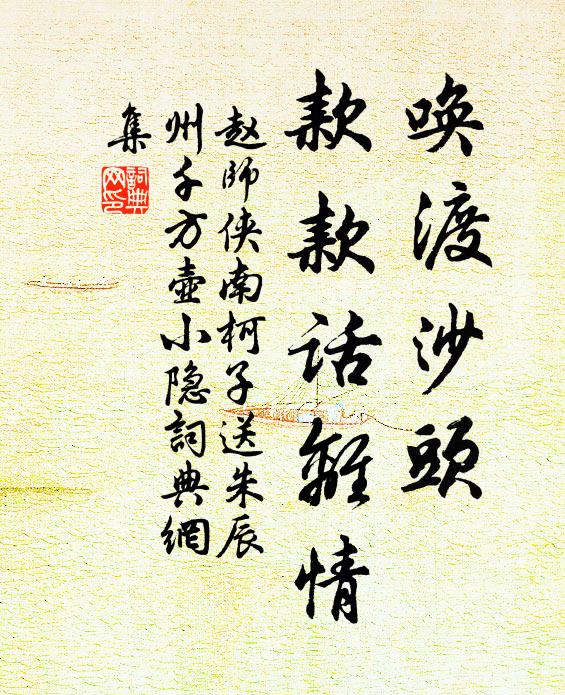 唤渡沙頭
款款話離情
赵師侠南柯子送朱辰
州千方壺小隐詞典網
集
詞典
网印